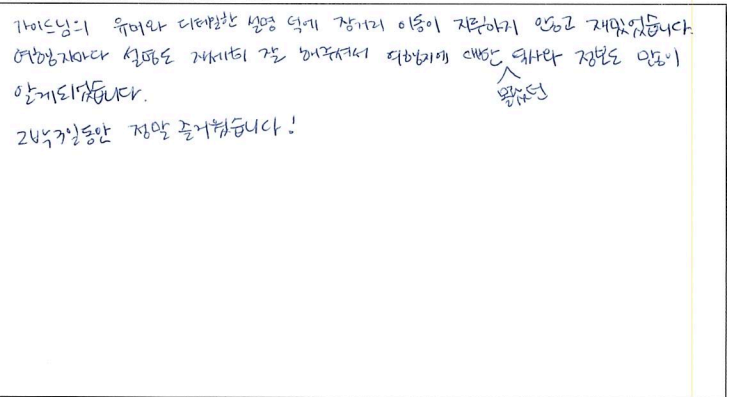 가이드님의 유머와 디테일한 설명 덕에 장거리 이동이 지루하지 않고 재밌었습니다.
여행지마다 설명도 자세히 잘 해주셔서 여행지에 대한 몰랐던 역사와 정보도 많이
알게되었습니다.
2박3일동안 정말 즐거웠습니다!